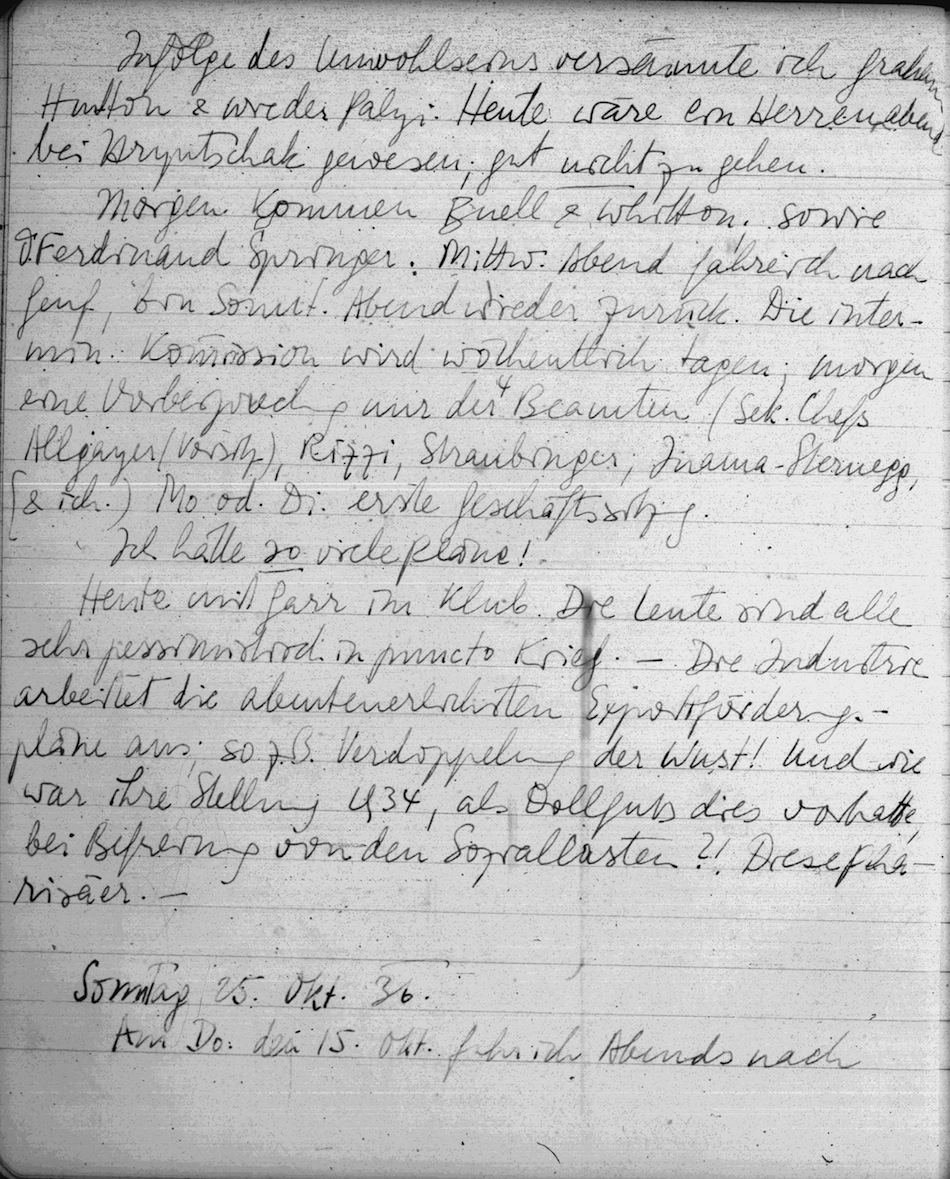 Infolge des Unwohlseins versäumte ich Graham
Hutton & wieder Palyi. Heute wäre ein Herrenabend
bei Hryntschak gewesen; gut nicht zu gehen.
Morgen kommen Buell & Whitton, sowie
D. Ferdinand Springer. Mittw. Abend fahre ich nach
Genf, bin Sonnt. Abend wieder zurück. Die inter-
min. Komission wird wöchentlich tagen; morgen
eine Vorbesprechung nur der 4 Beamten (Sek. Chefs
Allgayer (Vorsitz), Rizzi, Straubinger, Inama-Sternegg,
(& ich.) Mo od. Di. erste Geschäftssitzg.
Ich hätte so viele Pläne!
Heute mit Garr im Klub. Die Leute sind alle
sehr pessimistisch in puncto Krieg. – Die Industrie
arbeitet die abenteuerlichsten Exportförderungs-
pläne aus; so z.B. Verdoppelung der Wust! Und wie
war ihre Stellung 1934, als Dollfuss dies vorhatte,
bei Befreiung von den Soziallasten?! Diese Pha-
risäer. –
Sonntag 25. Okt. 36.
Am Do. den 15. Okt. fuhr ich Abends nach